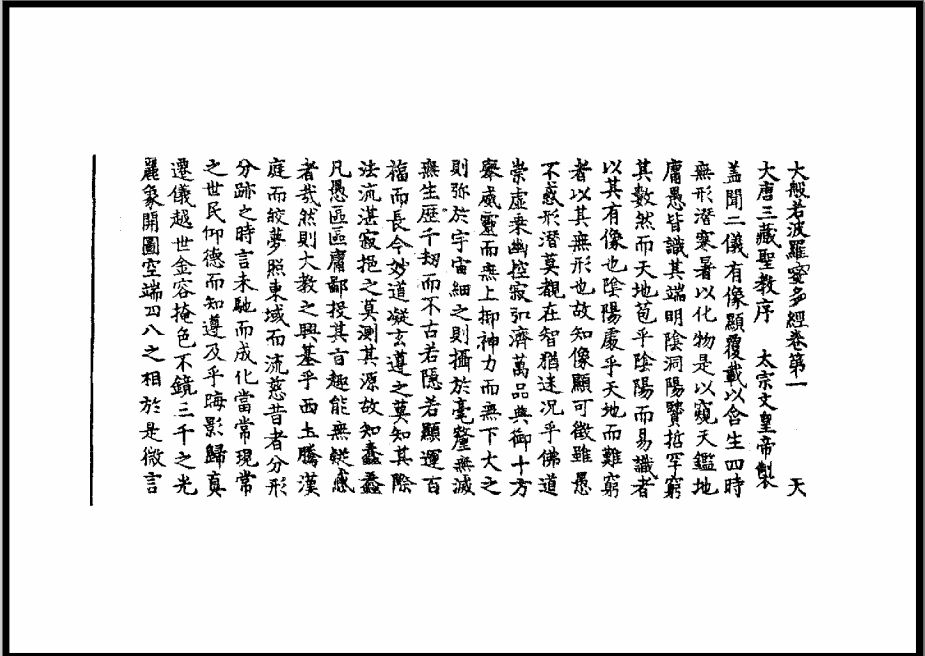 大般若波羅蜜多經卷第一 天
大唐三藏聖教序 太宗文皇帝製
盖聞二儀有像顯覆載以含生四時
無形潛寒暑以化物是以窺天鑑地
庸愚皆識其端明陰洞陽賢哲罕窮
其數然而天地苞乎陰陽而易識者
以其有像也陰陽處乎天地而難窮
者以其無形也故知像顯可徵雖愚
不惑形潛莫覩在智猶迷况乎佛道
崇虛乘幽控寂弘濟萬品典御十方
舉威靈而無上抑神力而無下大之
則弥於宇宙細之則攝於毫釐無滅
無生歷千劫而不古若隱若顯運百
福而長今妙道凝玄遵之莫知其際
法流湛寂挹之莫測其源故知蠢蠢
凡愚區區庸鄙投其旨趣能無疑惑
者哉然則大教之興基乎西土騰漢
庭而皎夢照東域而流慈昔者分形
分跡之時言未馳而成化當常現常
之世民仰德而知遵及乎晦影歸真
遷儀越世金容掩色不鏡三千之光
麗象開圖空端四八之相於是微言